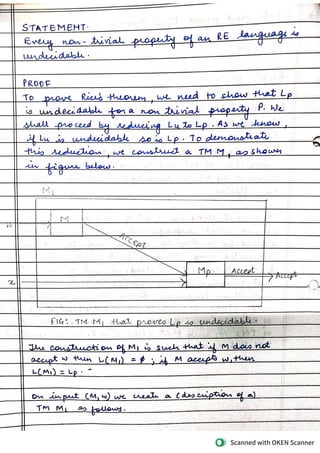 STATEMENT.
Every non-trivial property of an RE language is
undecidable.
PROOF
To prove Rice's theorem, we need to show that Lp
is undecidable for a non trivial property P. We
shall proceed by reducing Lu to Lp. As we know,
if Lu is undecidable so is Lp. To demonstrate
this reduction, we construct a TM M, as shown
in figure below.
M1
M
ACCEPT
w
Mp
Accept
Accept
x
FIG: TM M1 that proves Lp is undecidable.
The construction of M1 is such that if M does not
accept w then L(M1) = ø ; if M accepts w, then
L(M1) = Lp.
On input (M, w) we create a (description of a)
TM M1 as follows.
Scanned with OKEN Scanner